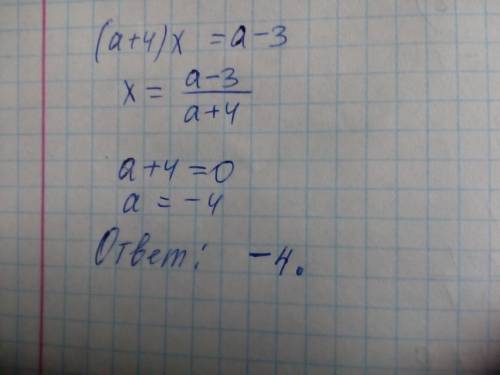 (a+4)x = a-3
x = \frac{a-3}{a+4}
a+4=0
a = -4
Ответ: -4.